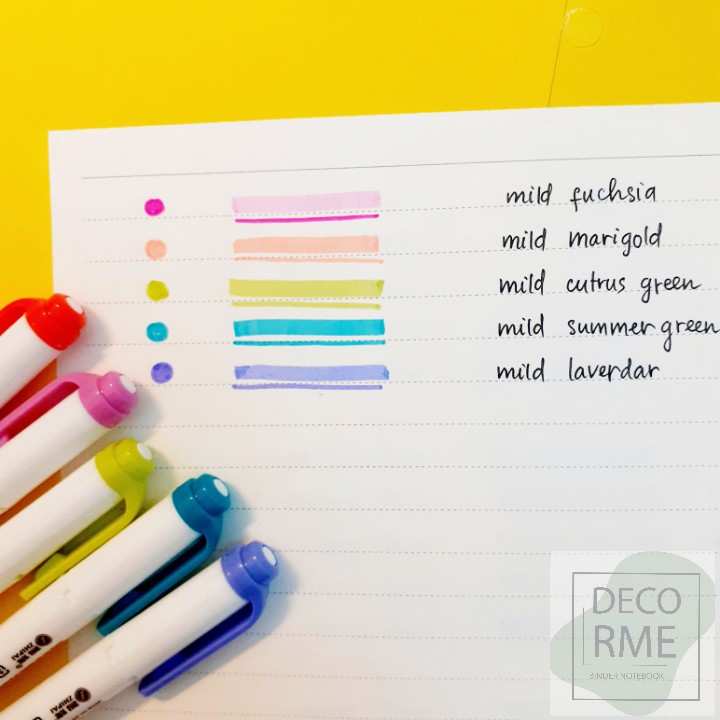 mild fuchsia
mild marigold
mild cutrus green
mild summer green
mild laverdar
ZHIPAI
ZHIPAI
DECO
RME
BINDER NOTEBOOK